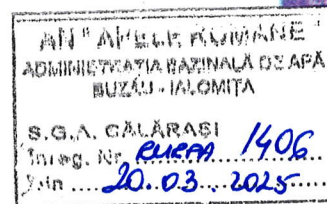 AN "APELE ROMÂNE"
ADMINISTRAŢIA BAZINALĂ DE APĂ
BUZĂU - IALOMIŢA
S.G.A. CĂLĂRAŞI
Înreg. Nr. 1406
Ziin ..... 20.03.2025.....